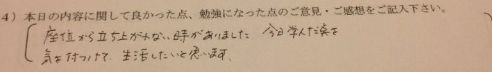 4）本日の内容に関して良かった点、勉強になった点のご意見・ご感想をご記入下さい。
座位から立ち上がれない時がありました 今日学んだ実を
気を付つけて 生活したいと思います。